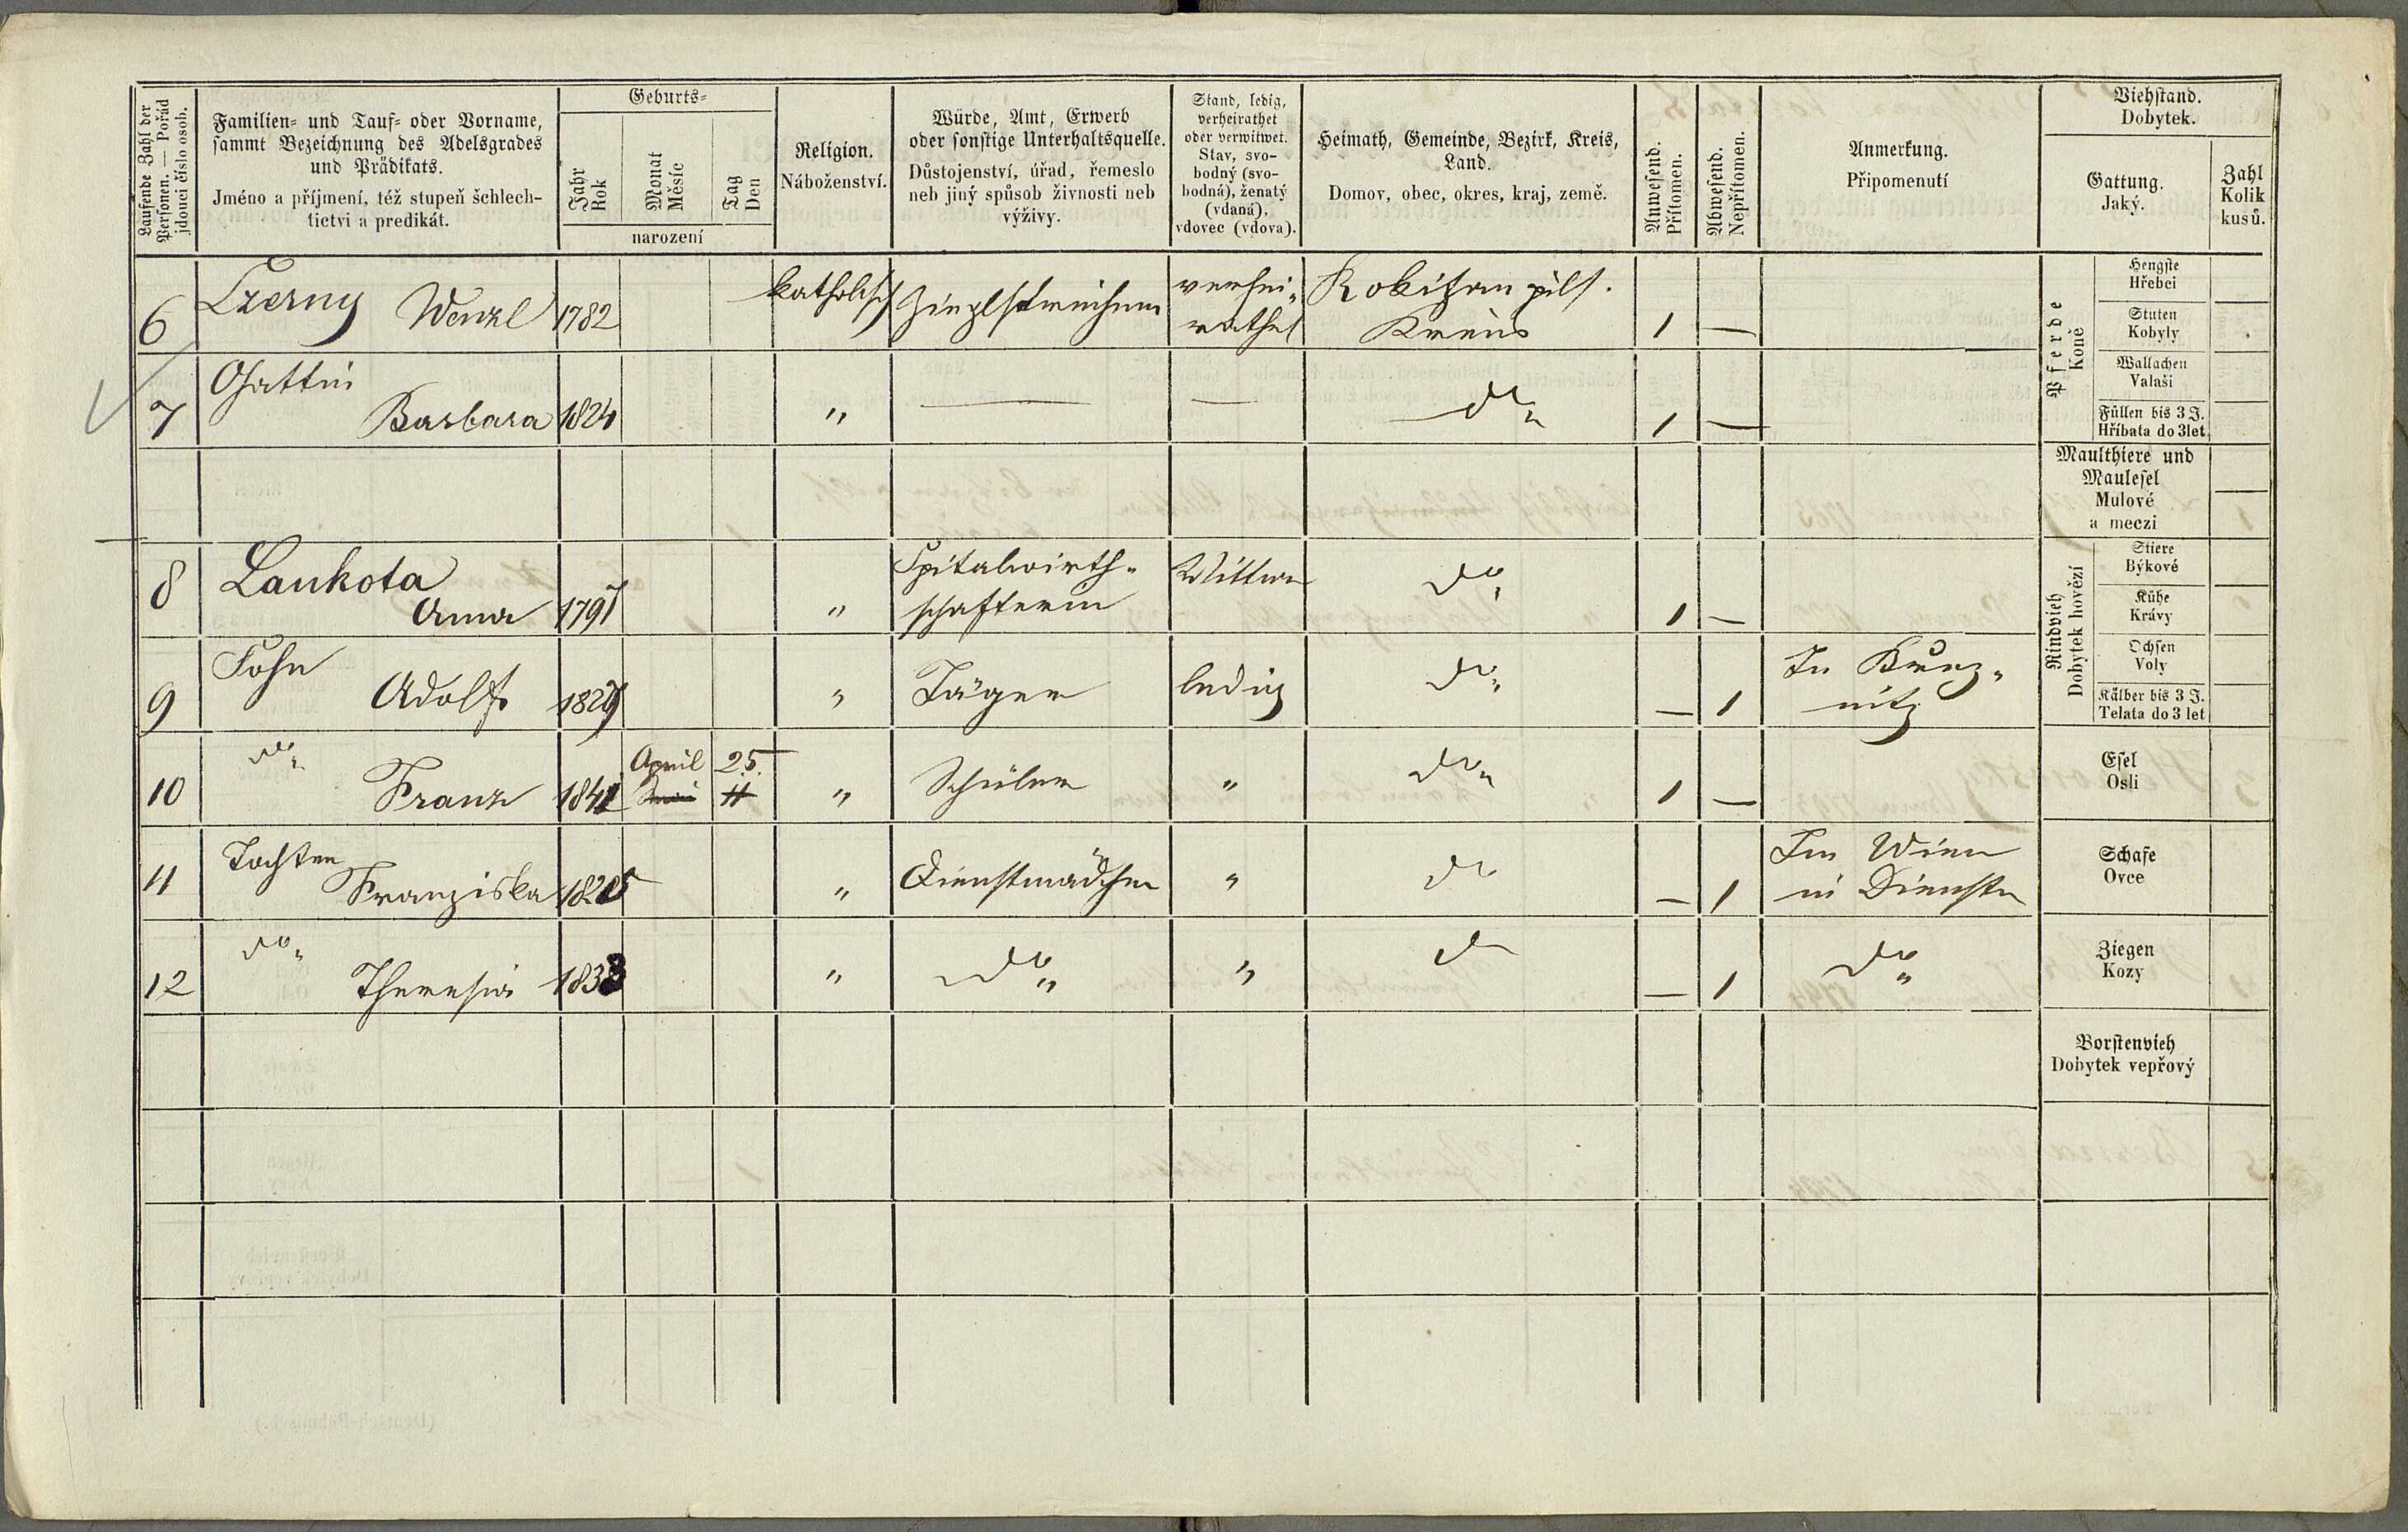 Laufende Zahl der Personen. — Pořád jdoucí číslo osob.
Familien= und Tauf= oder Vorname,
sammt Bezeichnung des Adelsgrades
und Prädikats.
Jméno a příjmení, též stupeň šchlech-
tictvi a predikát.
Geburts=
Jahr Rok
Monat Měsíc
Tag Den
narození
Religion.
Náboženství.
Würde, Amt, Erwerb
oder sonstige Unterhaltsquelle.
Důstojenství, úřad, řemeslo
neb jiný spůsob živnosti neb
výživy.
Stand, ledig,
verheirathet
oder verwitwet.
Stav, svo-
bodný (svo-
bodná), ženatý
(vdaná),
vdovec (vdova).
Heimath, Gemeinde, Bezirk, Kreis,
Land.
Domov, obec, okres, kraj, země.
Anwesend.
Přítomen.
Abwesend.
Nepřítomen.
Anmerkung.
Připomenutí
Viehstand.
Dobytek.
Gattung.
Jaký.
Zahl
Kolik
kusů.
6 Czerny Wenzl 1782 katholisch Zieglstreicher verhei„ rathet Rokitzan pils. Kreis 1 —
7 Gattin Barbara 1824 „ — — do„ 1 —
8 Laukota Anna 1797 „ Spitalwirth„ schafterin Wittwe do„ 1 —
9 Sohn Adolf 1827 „ Jäger ledig do„ — 1 In
nitz
10 do„ Franz 1841 April 25. 11 „ Schüler „ do„ 1 —
11 Tochter Franziska 1825 „ Dienstmädchen „ do — 1 In Wien in Diensten
12 do„ Theresia 1833 „ do„ „ do — 1 do„
Pferde
Koně
Hengste
Hřebci
Stuten
Kobyly
Wallachen
Valaši
Füllen bis 3 J.
Hříbata do 3 let
Maulthiere und
Maulesel
Mulové
a meczi
Rindvieh
Dobytek hovězí
Stiere
Býkové
Kühe
Krávy
Ochsen
Voly
Kälber bis 3 J.
Telata do 3 let
Esel
Osli
Schafe
Ovce
Ziegen
Kozy
Borstenvieh
Dobytek vepřový